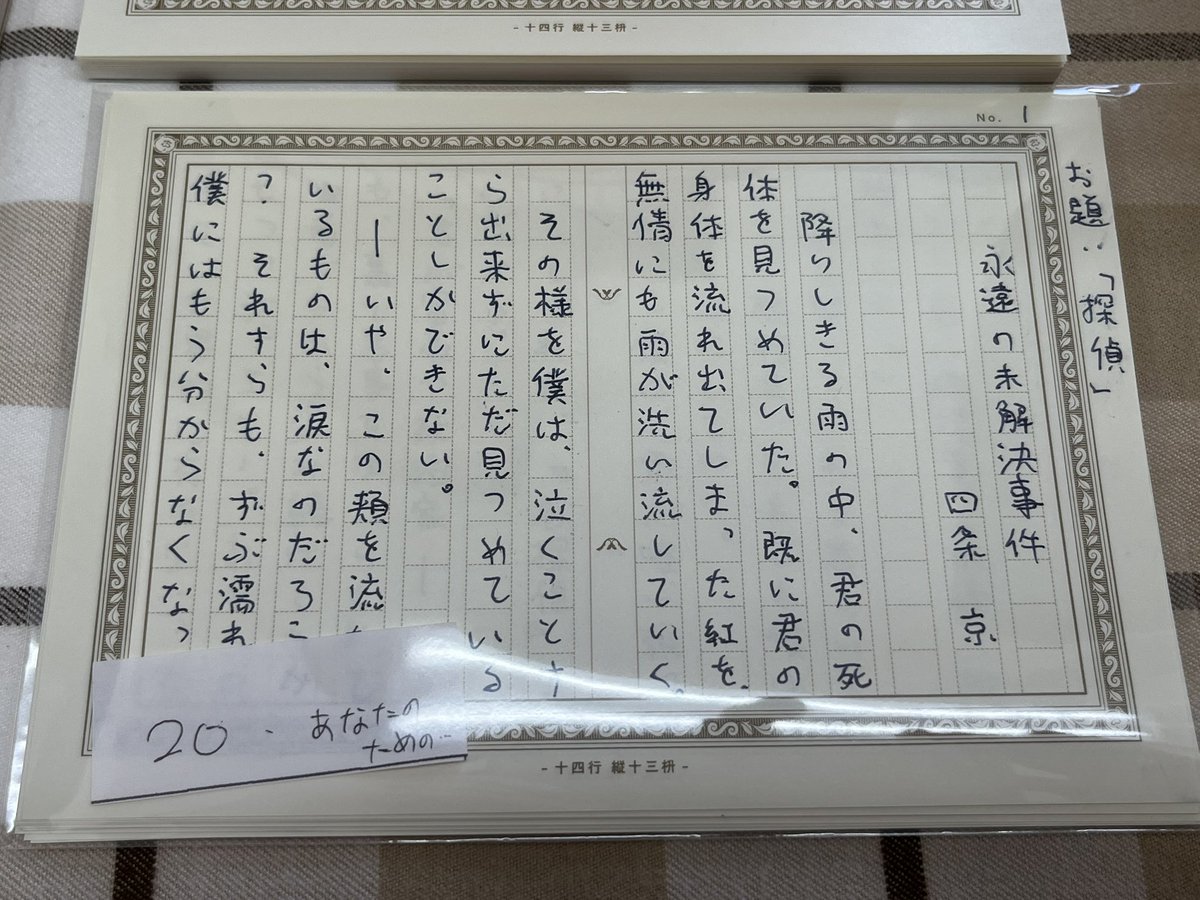 - 十四行 縦十三枡 -
No. 1
お題:「探偵」
永遠の未解決事件
四条 京
降りしきる雨の中、君の死
体を見つめていた。既に君の
身体を流れ出てしまった紅を、
無情にも雨が洗い流していく。
その様を僕は、泣くことす
ら出来ずにただ見つめている
ことしかできない。
―いや、この頬を流
いるものは、涙なのだろう
?それすらも、ずぶ濡れ
僕にはもう分からなくなっ
20. あなたの
ための…
- 十四行 縦十三枡 -